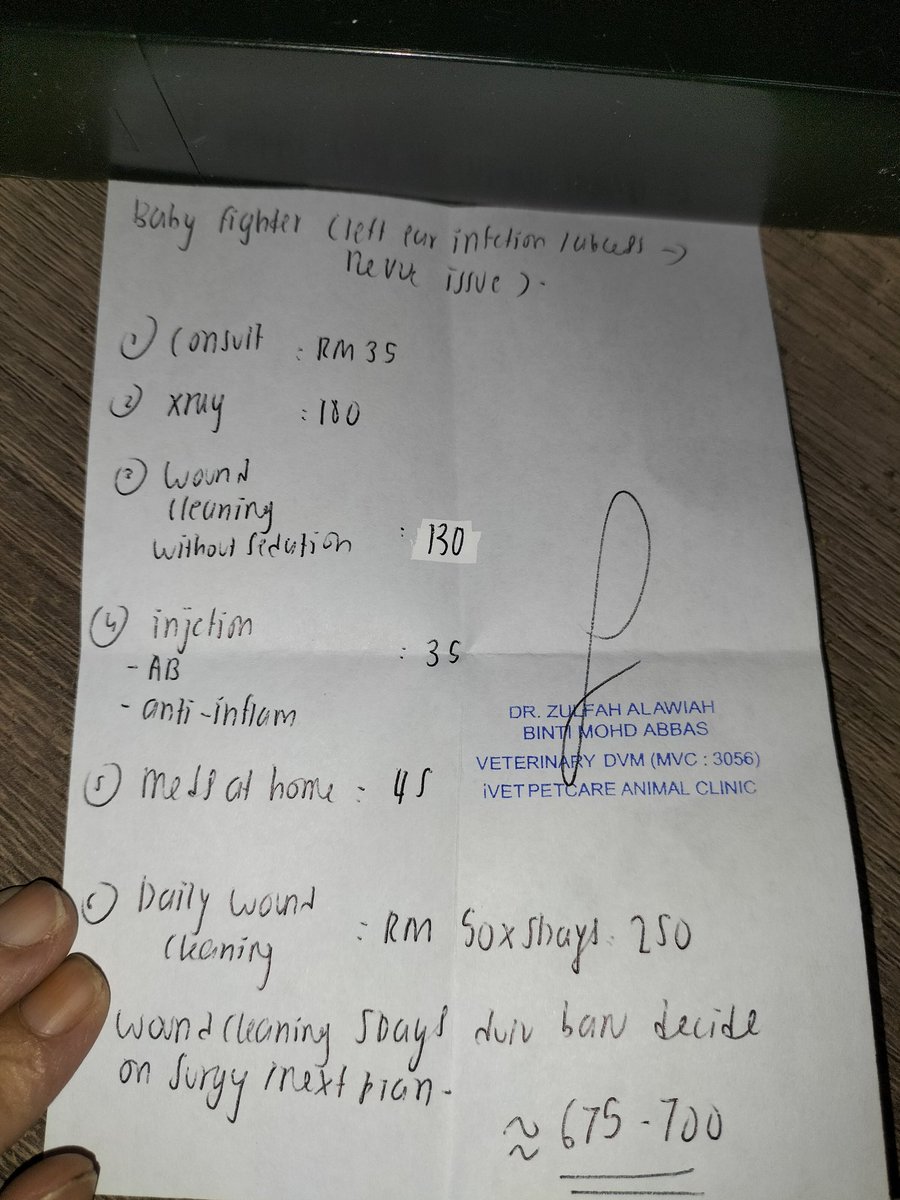 Baby fighter (left ear infction / abcess →
nerve issue).
① Consult : RM 35
② xray : 180
③ Wound
cleaning
without sedation : 130
④ injction : 35
- AB
- anti-inflam
⑤ Meds at home : 45
⑥ Daily wound
cleaning : RM 50 x 5days : 250
wound cleaning 5Days dulu baru decide
on surgy / next plan.
≈ 675 - 700
DR. ZULFAH ALAWIAH
BINTI MOHD ABBAS
VETERINARY DVM (MVC : 3056)
iVET PETCARE ANIMAL CLINIC